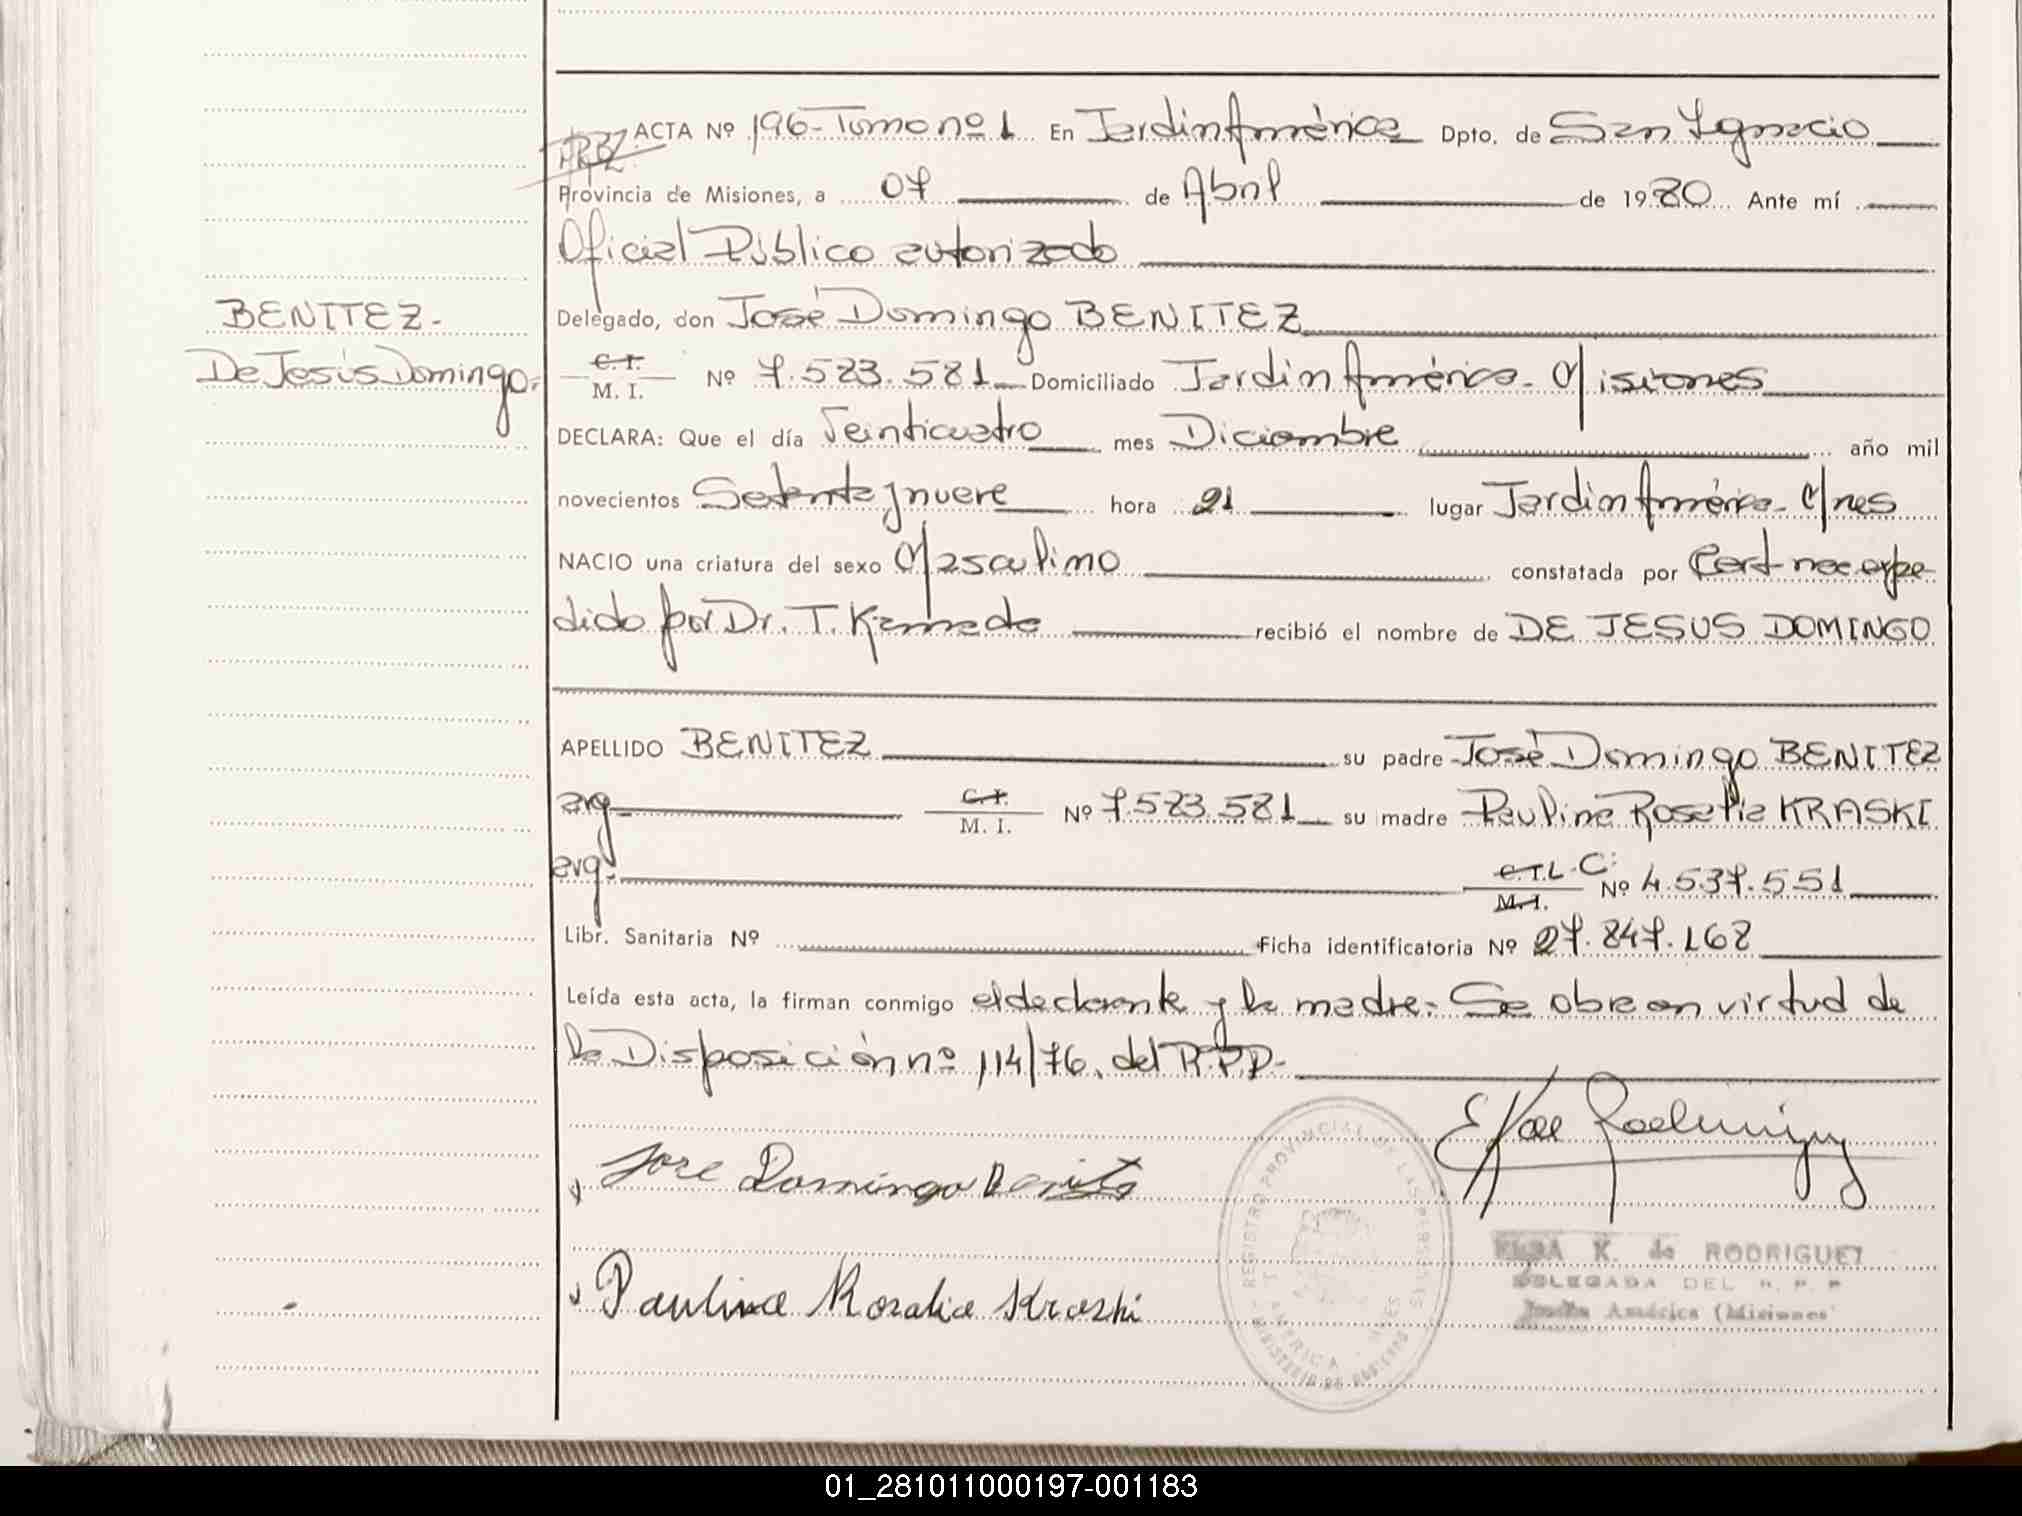 ACTA Nº 196-Tomo nº 1 En Jardin América Dpto. de San Ignacio
Provincia de Misiones, a 07 de Abril de 1980 Ante mí
Oficial Público autorizado
BENITEZ-
Delegado, don José Domingo BENITEZ
De Jesús Domingo.
C. I.
M. I. Nº 7.583.581 Domiciliado Jardin América- Misiones
DECLARA: Que el día Veinticuatro mes Diciembre año mil
novecientos Setenta y nueve hora 21 lugar Jardin América- Mnes
NACIO una criatura del sexo Masculino constatada por Cert nac expe-
dido por Dr. T. Kameda recibió el nombre de DE JESUS DOMINGO
APELLIDO BENITEZ su padre José Domingo BENITEZ
arg- C. I.
M. I. Nº 7.583.581 su madre Paulina Rosalia KRASKI
arg- C. I. L.C. M. I. Nº 4.537.551
Libr. Sanitaria Nº Ficha identificatoria Nº 27.847.168
Leída esta acta, la firman conmigo el declarante y la madre.- Se obre en virtud de
la Disposición nº 114/76. del R.P.P-
Jose Domingo Benitez
Paulina Rosalia Kraski
REGISTRO PROVINCIAL DE LAS PERSONAS
MINISTERIO DE GOBIERNO
ELBA K. de RODRIGUEZ
DELEGADA DEL R. P. P.
Jardín América (Misiones)
01_281011000197-001183